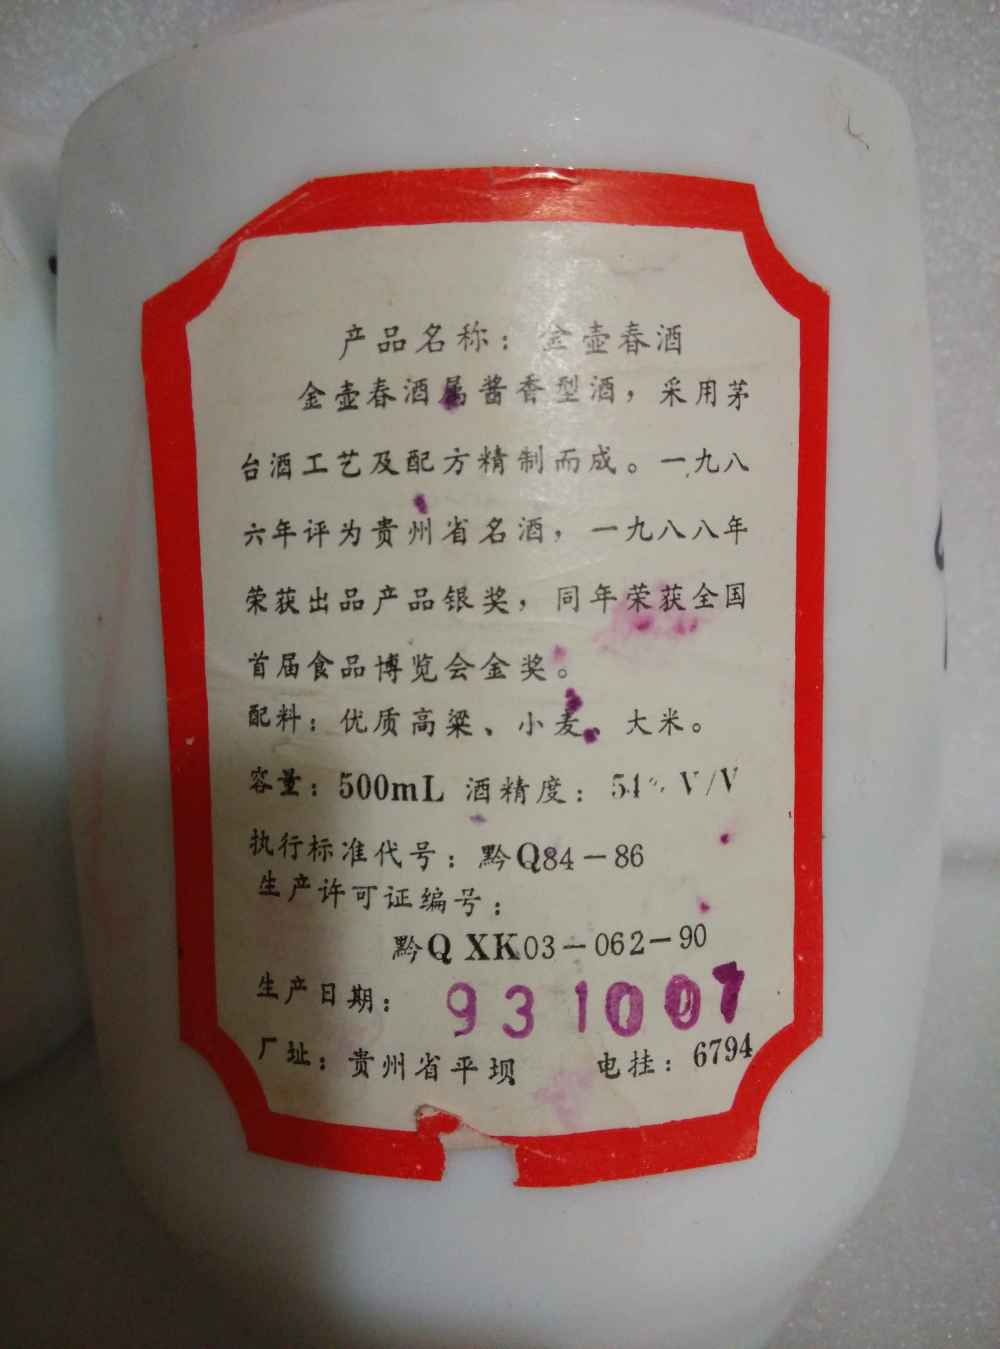 产品名称：金壶春酒
金壶春酒属酱香型酒，采用茅
台酒工艺及配方精制而成。一九八
六年评为贵州省名酒，一九八八年
荣获出品产品银奖，同年荣获全国
首届食品博览会金奖。
配料：优质高梁、小麦、大米。
容量：500mL 酒精度：54% V/V
执行标准代号：黔Q84-86
生产许可证编号：
黔Q XK03-062-90
生产日期：931007
厂址：贵州省平坝 电挂：6794